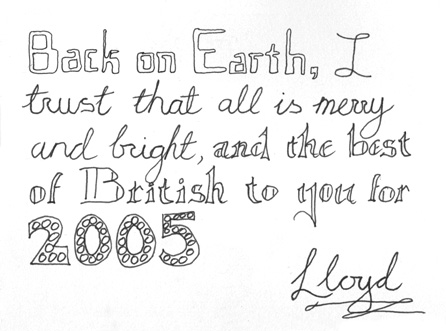 Back on Earth, I
trust that all is merry
and bright, and the best
of British to you for
2005
Lloyd